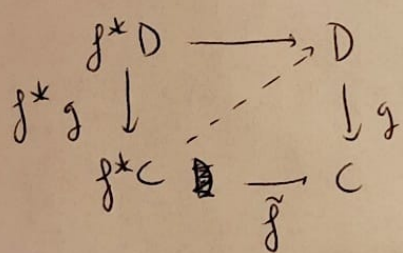 f* D → D
f* g ↓ ↓ g
f* C → C
f̃